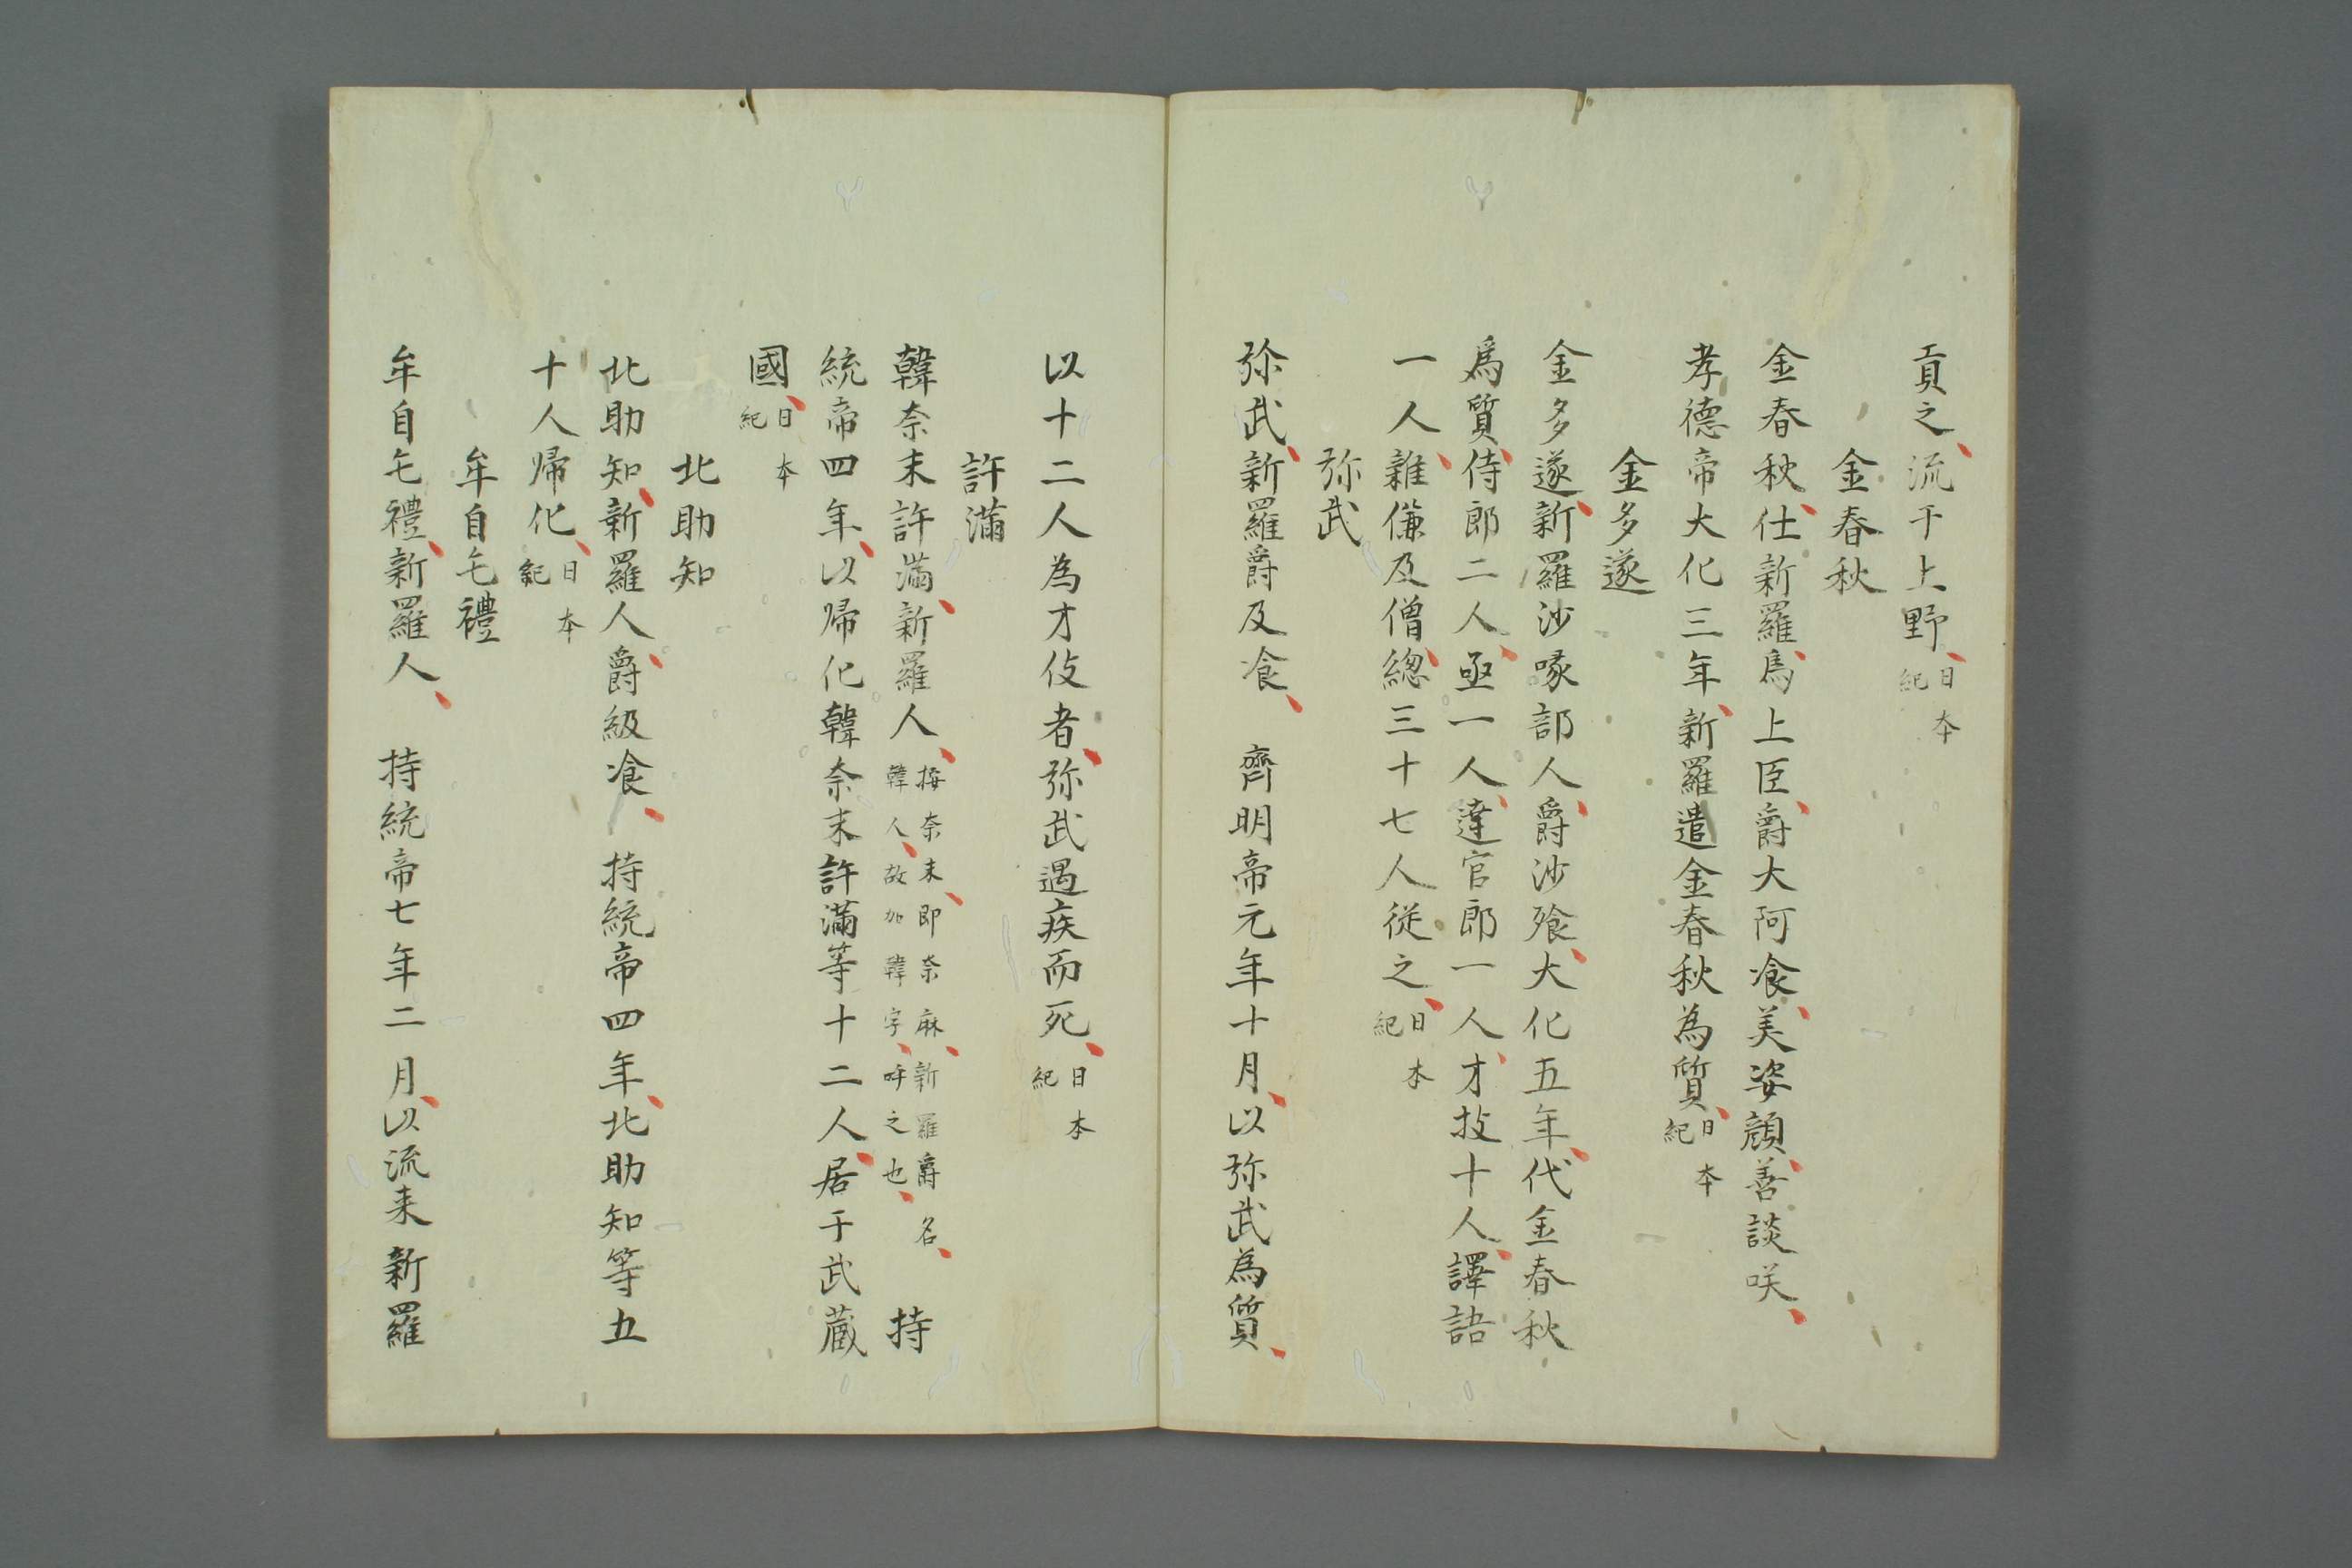 貢之、流于上野、日本紀
金春秋
金春秋、仕新羅、爲上臣、爵大阿飡、美姿顔、善談咲、
孝德帝大化三年、新羅遣金春秋為質、日本紀
金多遂
金多遂、新羅沙㖨部人、爵沙飡、大化五年、代金春秋
爲質、侍郎二人、亟一人、達官郎一人、才技十人、譯語
一人、雜傔及僧、總三十七人從之、日本紀
弥武
弥武、新羅爵及飡、齊明帝元年十月、以弥武為質、
以十二人為才伎者、弥武遇疾而死、日本紀
許滿
韓奈末許滿、新羅人、按奈末、即奈麻、新羅爵名、韓人、故加韓字、呼之也、持
統帝四年、以帰化韓奈末許滿等十二人、居于武蔵
國、日本紀
北助知
北助知、新羅人、爵級飡、持統帝四年、北助知等五
十人帰化、日本紀
牟自乇禮
牟自乇禮、新羅人、持統帝七年二月、以流来新羅